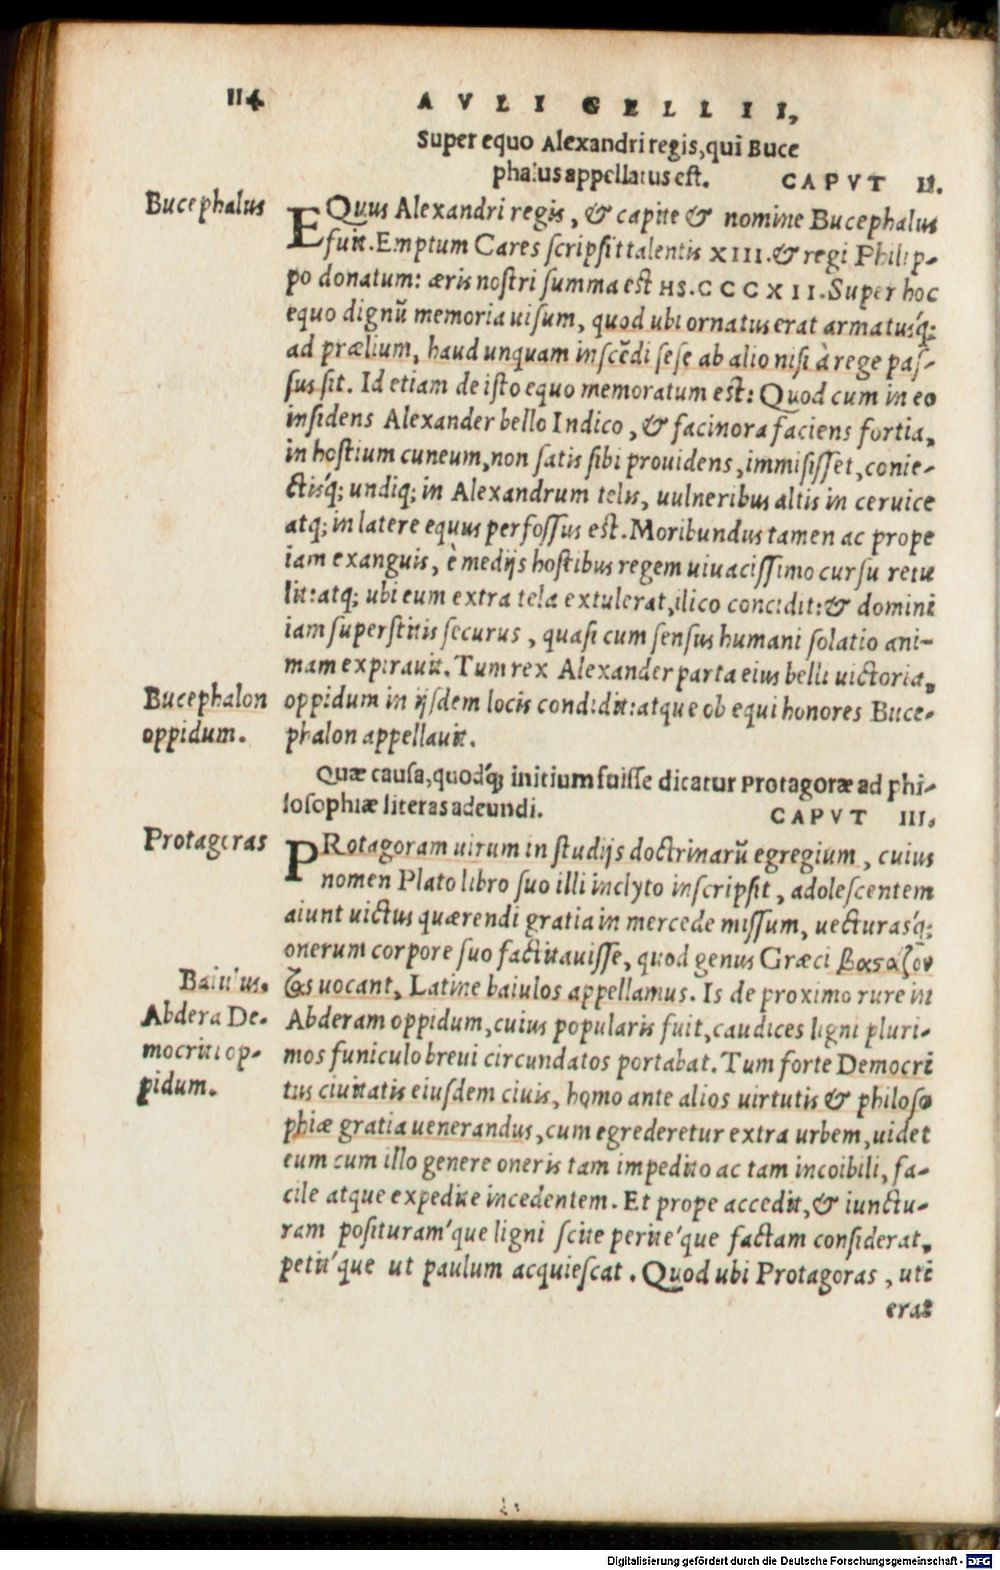 114
AVLI GELLII,
Super equo Alexandri regis, qui Buce
phalus appellatus est. CAPVT II.
Bucephalus
EQuus Alexandri regis, & capite & nomine Bucephalus
fuit. Emptum Cares scripsit talentis XIII. & regi Philip-
po donatum: æris nostri summa est HS. CCCXII. Super hoc
equo dignũ memoria uisum, quod ubi ornatus erat armatusq́;
ad prælium, haud unquam inscẽdi sese ab alio nisi à rege pas-
sus sit. Id etiam de isto equo memoratum est: Quod cum in eo
insidens Alexander bello Indico, & facinora faciens fortia,
in hostium cuneum, non satis sibi prouidens, immisisset, conie-
ctisq́; undiq; in Alexandrum telis, uulneribus altis in ceruice
atq; in latere equus perfossus est. Moribundus tamen ac prope
iam exanguis, è medijs hostibus regem uiuacissimo cursu retu
lit: atq; ubi eum extra tela extulerat, ilico concidit: & domini
iam superstitis securus, quasi cum sensus humani solatio ani-
mam expirauit. Tum rex Alexander parta eius belli uictoria,
Bucephalon
oppidum.
oppidum in ijsdem locis condidit: atque ob equi honores Buce-
phalon appellauit.
Quæ causa, quodq́; initium fuisse dicatur Protagoræ ad phi-
losophiæ literas adeundi. CAPVT III.
Protagoras
PRotagoram uirum in studijs doctrinarũ egregium, cuius
nomen Plato libro suo illi inclyto inscripsit, adolescentem
aiunt uictus quærendi gratia in mercede missum, uecturasq́;
onerum corpore suo factitauisse, quod genus Græci βαστάζον
Baiulus.
τας uocant, Latine baiulos appellamus. Is de proximo rure in
Abdera De-
mocriti op-
pidum.
Abderam oppidum, cuius popularis fuit, caudices ligni pluri-
mos funiculo breui circundatos portabat. Tum forte Democri
tus ciuitatis eiusdem ciuis, homo ante alios uirtutis & philoso
phiæ gratia uenerandus, cum egrederetur extra urbem, uidet
eum cum illo genere oneris tam impedito ac tam incoibili, fa-
cile atque expedite incedentem. Et prope accedit, & iunctu-
ram posituram'que ligni scite perite'que factam considerat,
petit'que ut paulum acquiescat. Quod ubi Protagoras, uti
erat
Digitalisierung gefördert durch die Deutsche Forschungsgemeinschaft - DFG